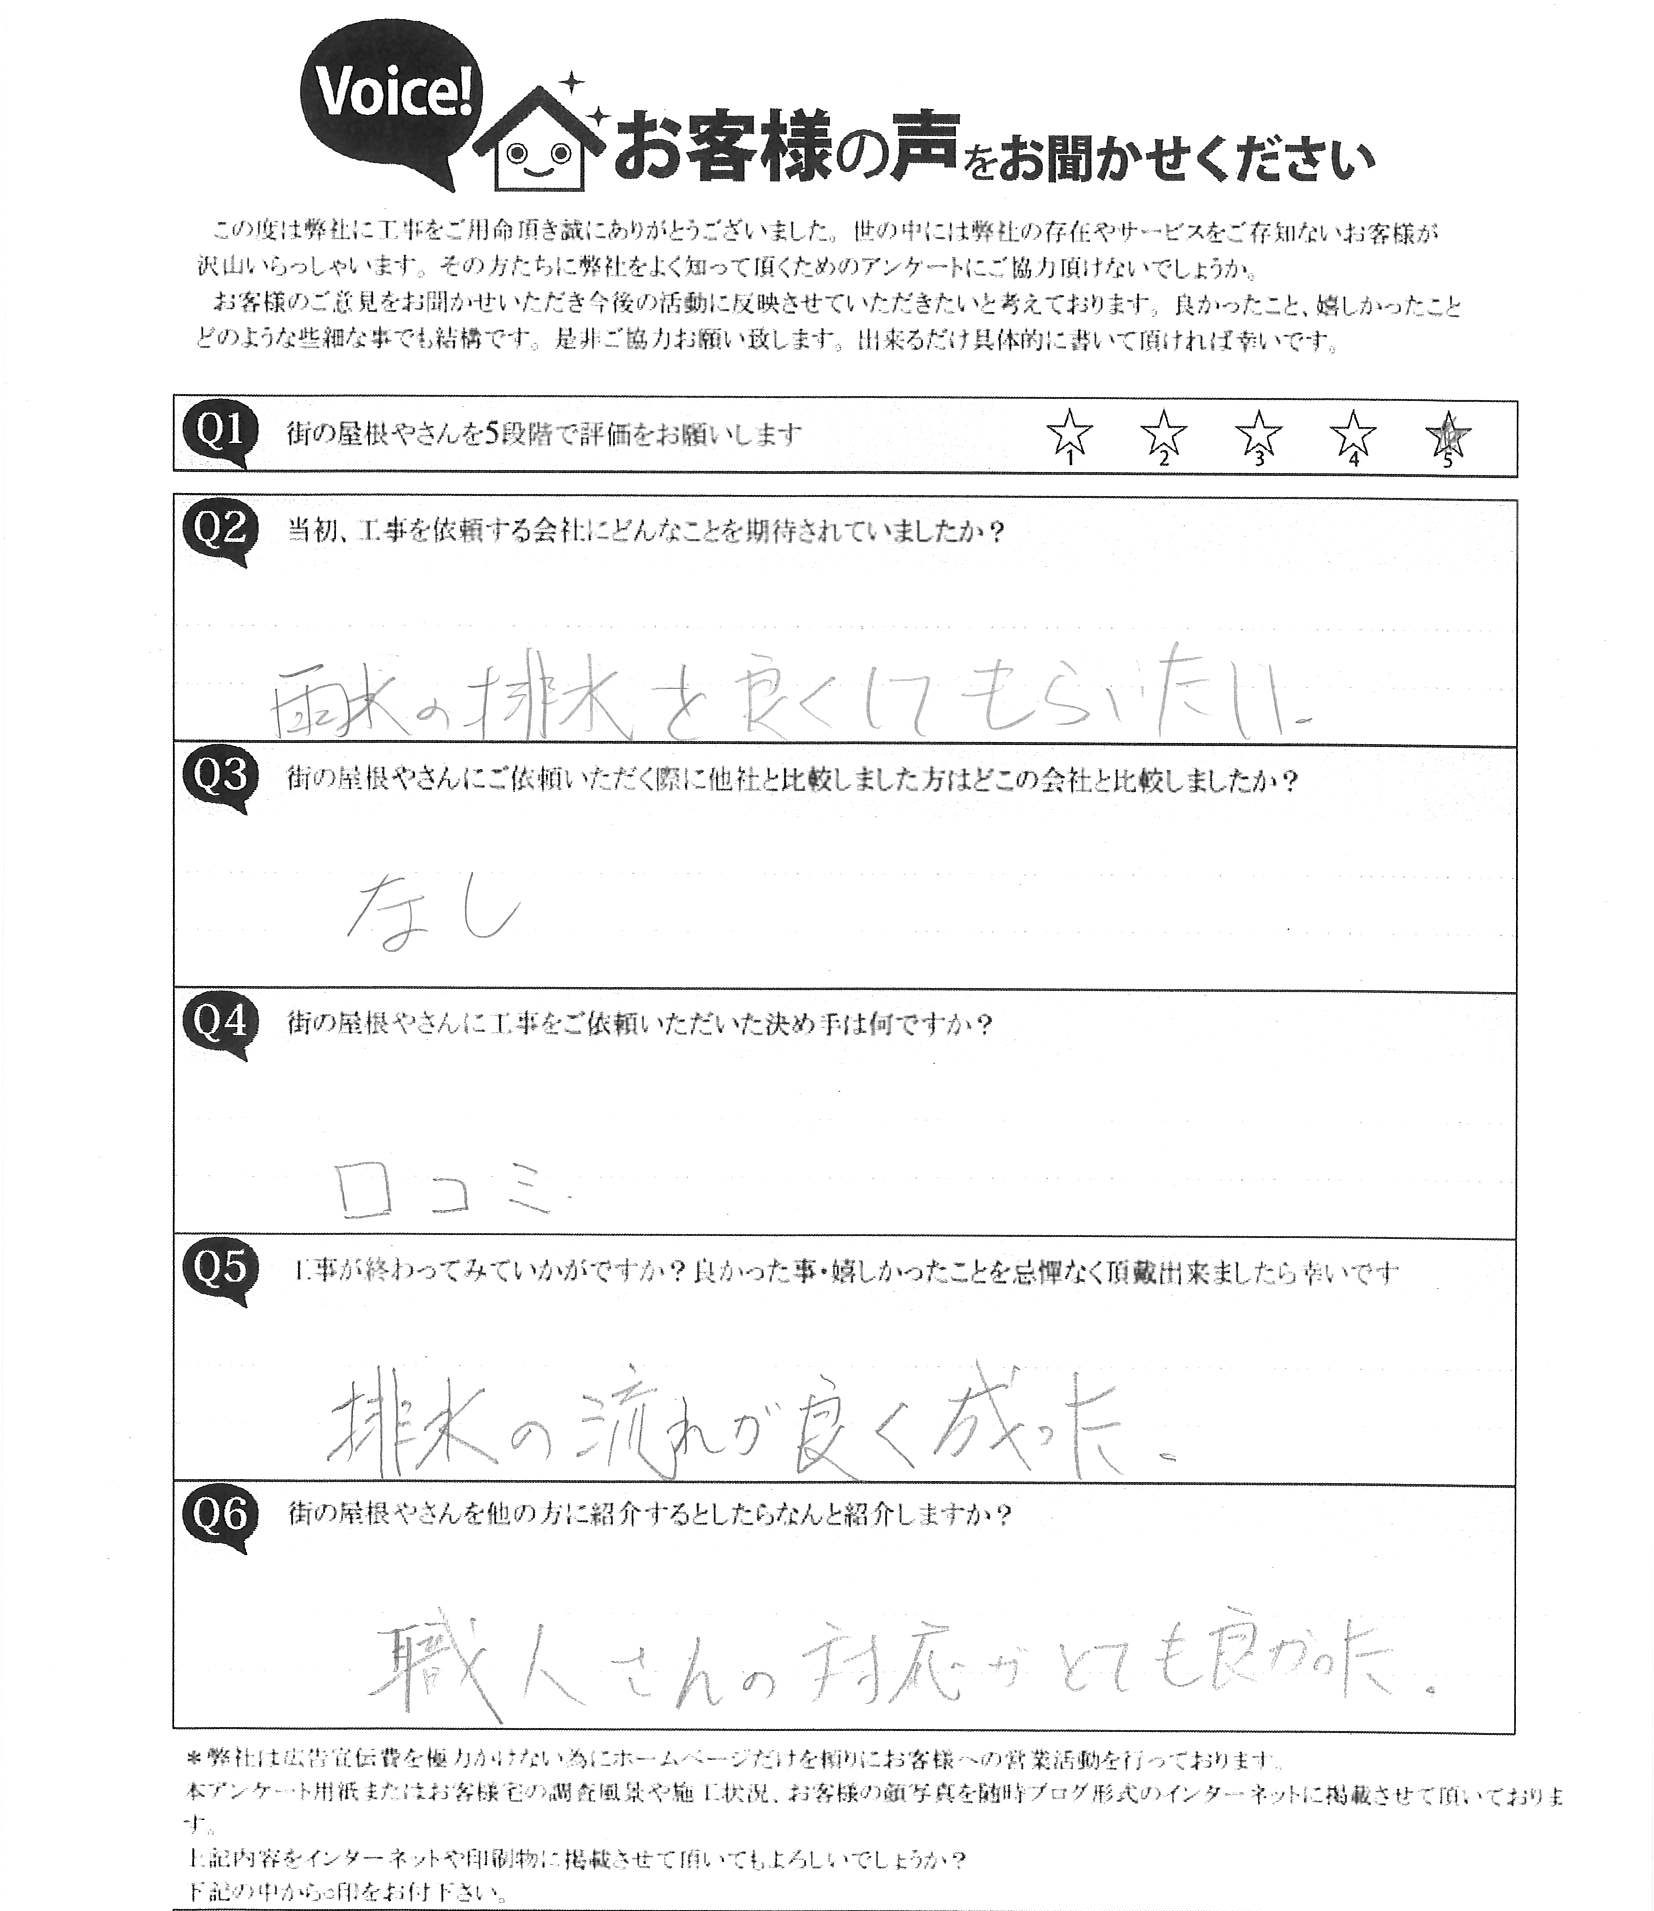 Voice!
お客様の声をお聞かせください
この度は弊社に工事をご用命頂き誠にありがとうございました。世の中には弊社の存在やサービスをご存知ないお客様が
沢山いらっしゃいます。その方たちに弊社をよく知って頂くためのアンケートにご協力頂けないでしょうか。
お客様のご意見をお聞かせいただき今後の活動に反映させていただきたいと考えております。良かったこと、嬉しかったこと
どのような些細な事でも結構です。是非ご協力お願い致します。出来るだけ具体的に書いて頂ければ幸いです。
Q1 街の屋根やさんを5段階で評価をお願いします 1 2 3 4 5
Q2 当初、工事を依頼する会社にどんなことを期待されていましたか?
雨水の排水を良くしてもらいたい。
Q3 街の屋根やさんにご依頼いただく際に他社と比較しました方はどこの会社と比較しましたか?
なし
Q4 街の屋根やさんに工事をご依頼いただいた決め手は何ですか?
口コミ
Q5 工事が終わってみていかがですか?良かった事・嬉しかったことを忌憚なく頂戴出来ましたら幸いです
排水の流れが良く成った。
Q6 街の屋根やさんを他の方に紹介するとしたらなんと紹介しますか?
職人さんの対応がとても良かった。
*弊社は広告宣伝費を極力かけない為にホームページだけを頼りにお客様への営業活動を行っております。
本アンケート用紙またはお客様宅の調査風景や施工状況、お客様の顔写真を随時ブログ形式のインターネットに掲載させて頂いておりま
す。
上記内容をインターネットや印刷物に掲載させて頂いてもよろしいでしょうか?
下記の中から○印をお付下さい。